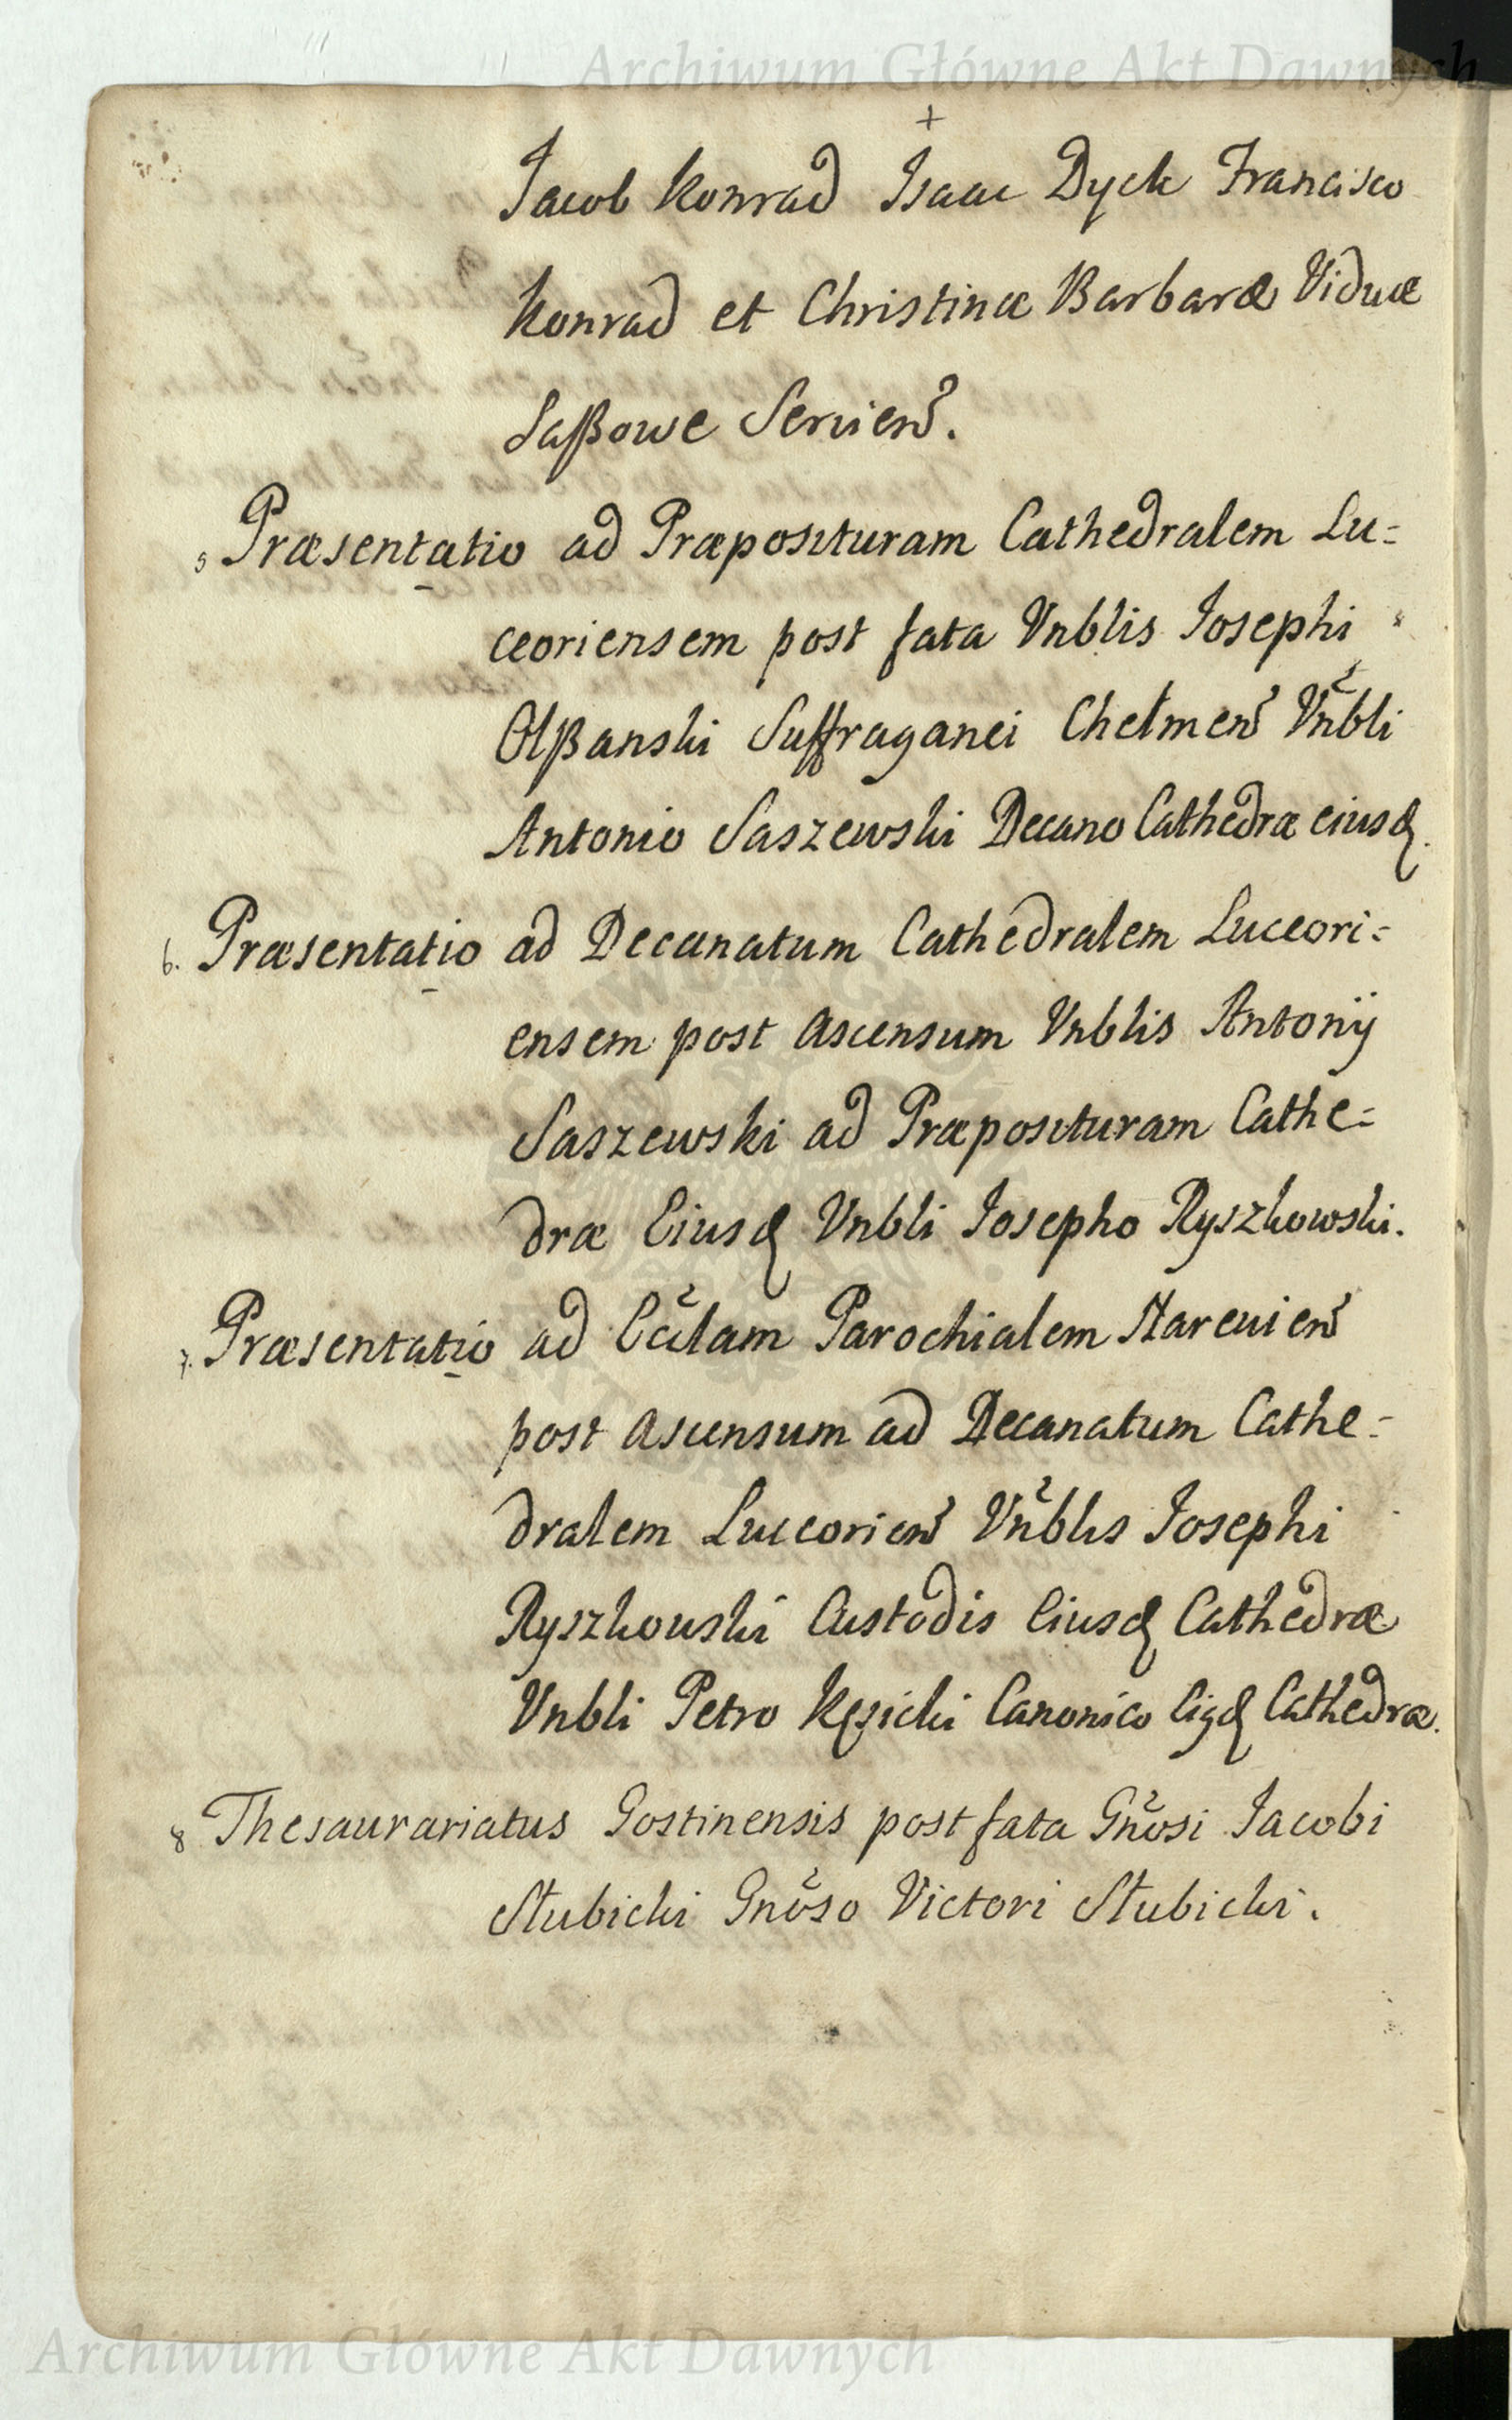 Archiwum Główne Akt Dawnych
+
Jacob Konrad Isaac Dyck Francisco
Konrad et Christinæ Barbaræ Viduæ
Saßowe Servien.
5 Præsentatio ad Præposituram Cathedralem Lu=
ceoriensem post fata Vnblis Josephi
Olßanski Suffraganei Chełmen Vnbli
Antonio Saszewski Decano Cathedræ eiusd.
6. Præsentatio ad Decanatum Cathedralem Luceori=
ensem post Ascensum Vnblis Antonij
Saszewski ad Præposituram Cathe=
dræ Eiusd Vnbli Josepho Ryszkowski.
7. Præsentatio ad Ecclam Parochialem Narevien
post Ascensum ad Decanatum Cathe=
dralem Luceorien Vnblis Josephi
Ryszkowski Custodis Eiusd Cathedræ
Vnbli Petro Kęsicki Canonico Eigd Cathedræ.
8 Thesaurariatus Gostinensis post fata Gnosi Jacobi
Słubicki Gnoso Victori Słubicki.
Archiwum Główne Akt Dawnych